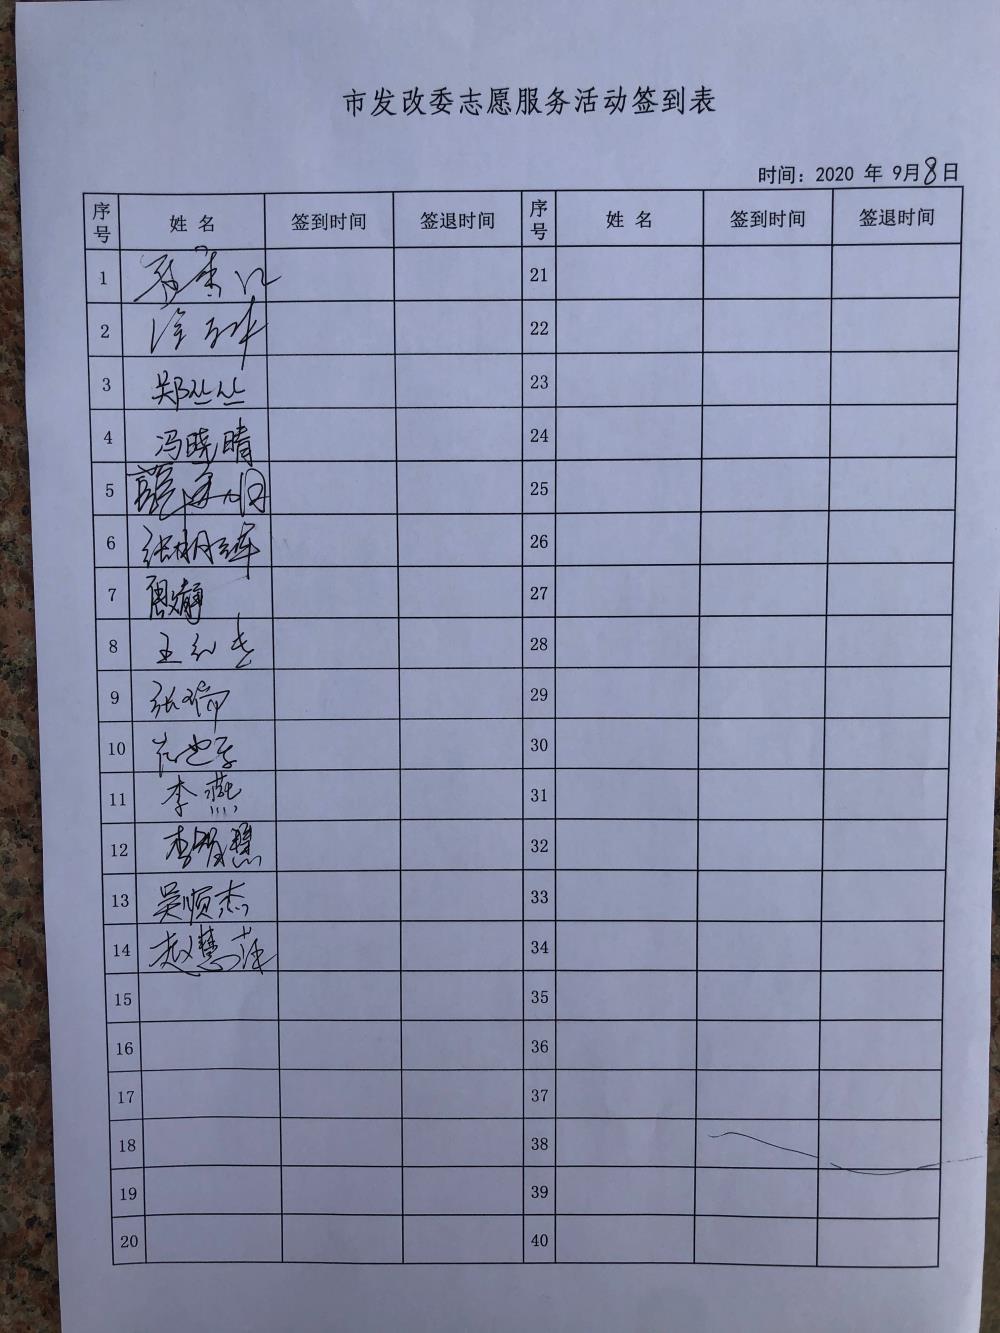 市发改委志愿服务活动签到表
时间：2020 年 9月8日
序号 姓 名 签到时间 签退时间 序号 姓 名 签到时间 签退时间
1 21
2 22
3 郑丛丛 23
4 冯晓晴 24
5 25
6 张 26
7 27
8 王红 28
9 张 29
10 30
11 李燕 31
12 李 慧 32
13 吴顺杰 33
14 赵慧萍 34
15 35
16 36
17 37
18 38
19 39
20 40